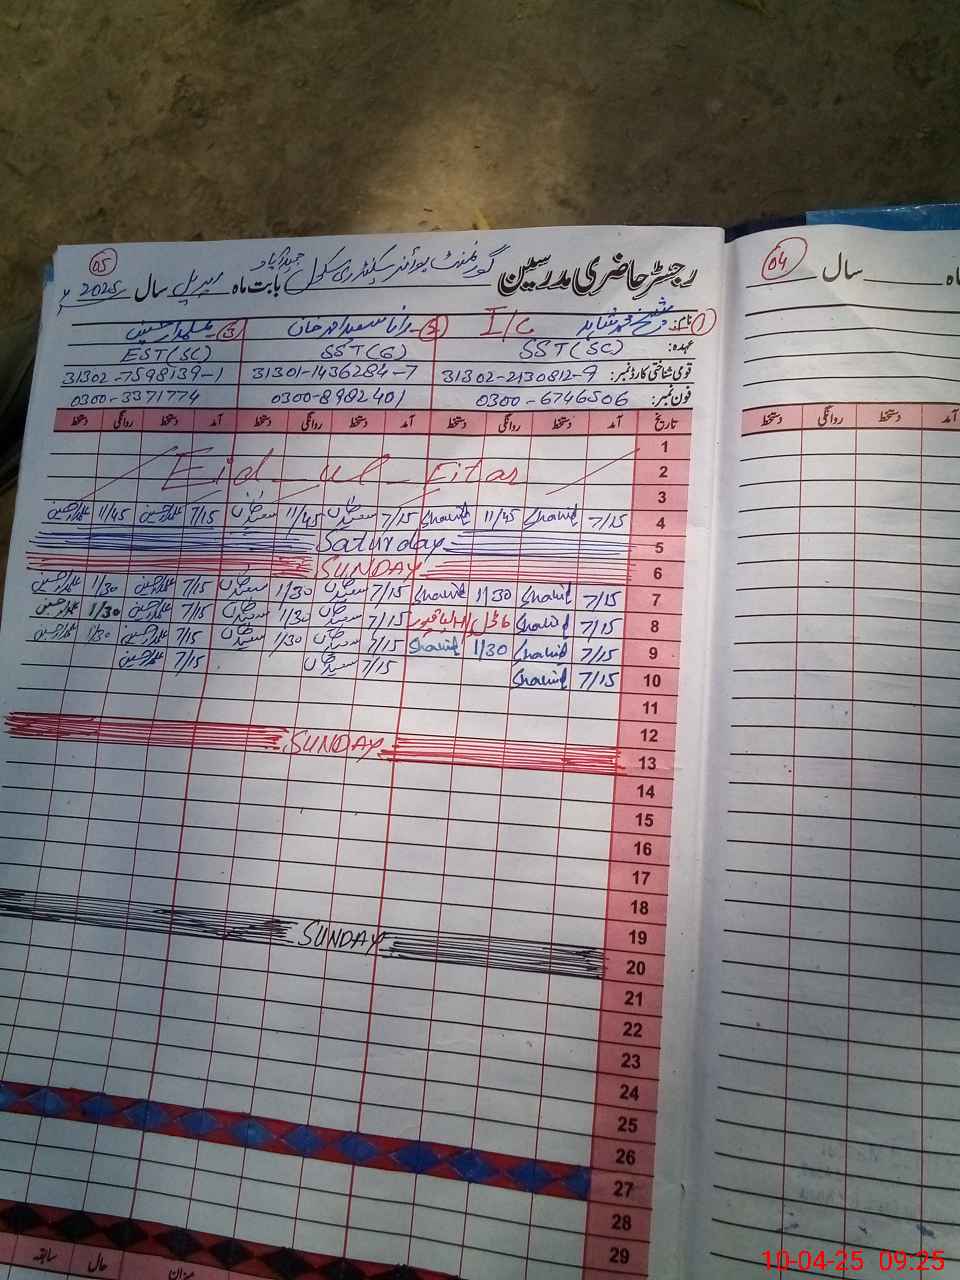 05
رجسٹر حاضری مدرسین گورنمنٹ بوائز سیکنڈری سکول بابت ماہ اپریل سال 2025ء
نام: ① شاہد I/C ② رانا سعید احمد خان ③
عہدہ: SST (SC) SST (G) EST (SC)
قومی شناختی کارڈ نمبر: 31302-2130812-9 31301-1436284-7 31302-7598139-1
فون نمبر: 0300-6746506 0300-8982401 0300-3371774
تاریخ آمد دستخط روانگی دستخط آمد دستخط روانگی دستخط آمد دستخط روانگی دستخط
1
2 Eid_ul_Fitar
3
4 7/15 Shahid 11/45 Shahid 7/15 سعید خان 11/45 سعید خان 7/15 11/45
5 Saturday
6 SUNDAY
7 7/15 Shahid 1/30 Shahid 7/15 سعید خان 1/30 سعید خان 7/15 1/30
8 7/15 Shahid 7/15 سعید خان 1/30 سعید خان 7/15 1/30
9 7/15 Shahid 1/30 Shahid 7/15 سعید خان 1/30 سعید خان 7/15 1/30
10 7/15 Shahid 7/15 سعید خان 7/15
11
12
13 SUNDAY
14
15
16
17
18
19
20 SUNDAY
21
22
23
24
25
26
27
28
29
میزان حال سابقہ
04
ماہ سال
آمد دستخط روانگی دستخط
10-04-25 09:25